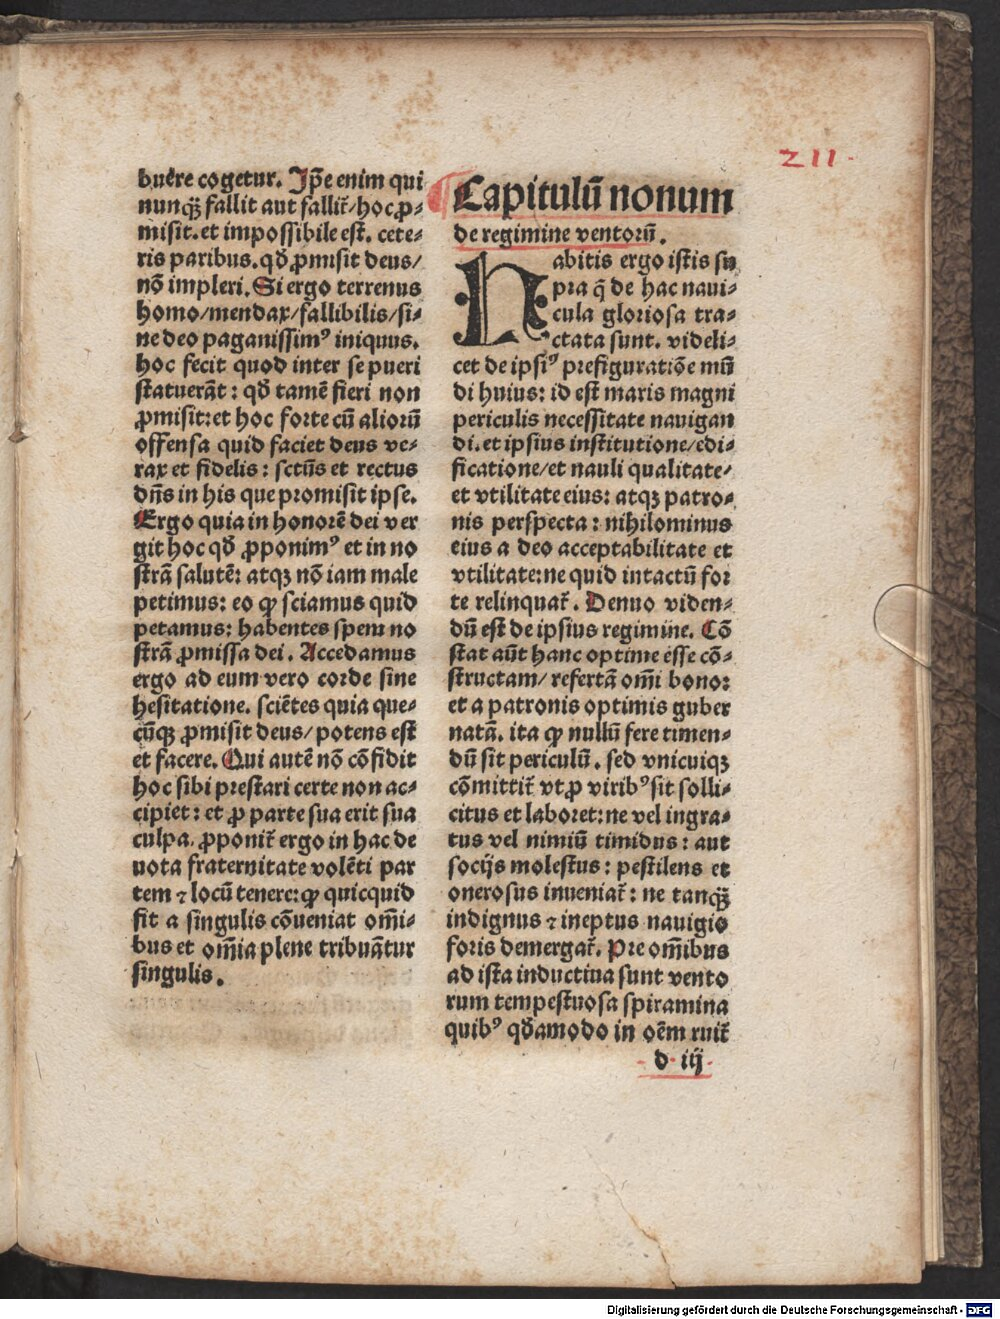 buēre cogetur. Ip̄e enim qui
nunq̄ȝ fallit aut fallit̄/hoc ꝓ⸗
misit. et impossibile est. cete⸗
ris paribus. qđ ꝓmisit deus/
nō impleri. Si ergo terrenus
homo/mendax/fallibilis/si⸗
ne deo paganissimꝰ iniquus.
hoc fecit quod inter se pueri
statuerāt: qđ tamē fieri non
ꝓmisit: et hoc forte cū aliorū
offensa quid faciet deus ve⸗
rax et fidelis: sctūs et rectus
dn̄s in his que promisit ipse.
Ergo quia in honorē dei ver
git hoc qđ ꝓponimꝰ et in no
strā salutē: atqȝ nō iam male
petimus: eo ꝙ sciamus quid
petamus: habentes spem no
strā ꝓmissa dei. Accedamus
ergo ad eum vero corde sine
hesitatione. sciētes quia que⸗
cūqȝ ꝓmisit deus/potens est
et facere. Qui autē nō cōfidit
hoc sibi prestari certe non ac⸗
cipiet: et ꝓ parte sua erit sua
culpa. ꝓponit̄ ergo in hac de
uota fraternitate volēti par
tem ⁊ locū tenere: ꝙ quicquid
fit a singulis cōueniat om̄i⸗
bus et om̄ia plene tribuātur
singulis.
211.
Capitulū nonum
de regimine ventorū.
Habitis ergo istis su
pra q̄ de hac naui⸗
cula gloriosa tra⸗
ctata sunt. videli⸗
cet de ipsiꝰ prefiguratiōe mū
di huius: id est maris magni
periculis necessitate nauigan
di. et ipsius institutione/edi⸗
ficatione/et nauli qualitate⸗
et vtilitate eius: atqȝ patro⸗
nis perspecta: nihilominus
eius a deo acceptabilitate et
vtilitate: ne quid intactū for
te relinquat̄. Denuo viden⸗
dū est de ipsius regimine. Cō
stat aūt hanc optime esse cō⸗
structam/refertā om̄i bono:
et a patronis optimis guber
natā. ita ꝙ nullū fere timen⸗
dū sit periculū. sed vnicuiqȝ
cōmittit̄ vt ꝓ viribꝰ sit solli⸗
citus et laboret: ne vel ingra⸗
tus vel nimiū timidus: aut
socijs molestus: pestilens et
onerosus inueniat̄: ne tanq̄ȝ
indignus ⁊ ineptus nauigio
foris demergat̄. Pre om̄ibus
ad ista inductiua sunt vento
rum tempestuosa spiramina
quibꝰ qđamodo in oēm ruit̄
d iij
Digitalisierung gefördert durch die Deutsche Forschungsgemeinschaft - DFG